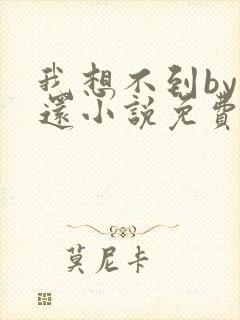 我想不到by
還小說免費
莫尼卡